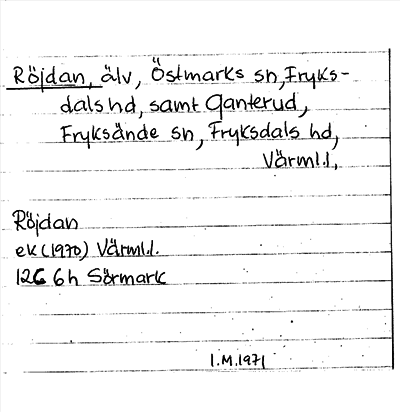 Röjdan, älv, Östmarks sn, Fryks-
dals hd, samt Ganterud,
Fryksände sn, Fryksdals hd,
Värml.l.
Röjdan
ek (1970) Värml.l.
12C 6h Sörmark
1.M.1971